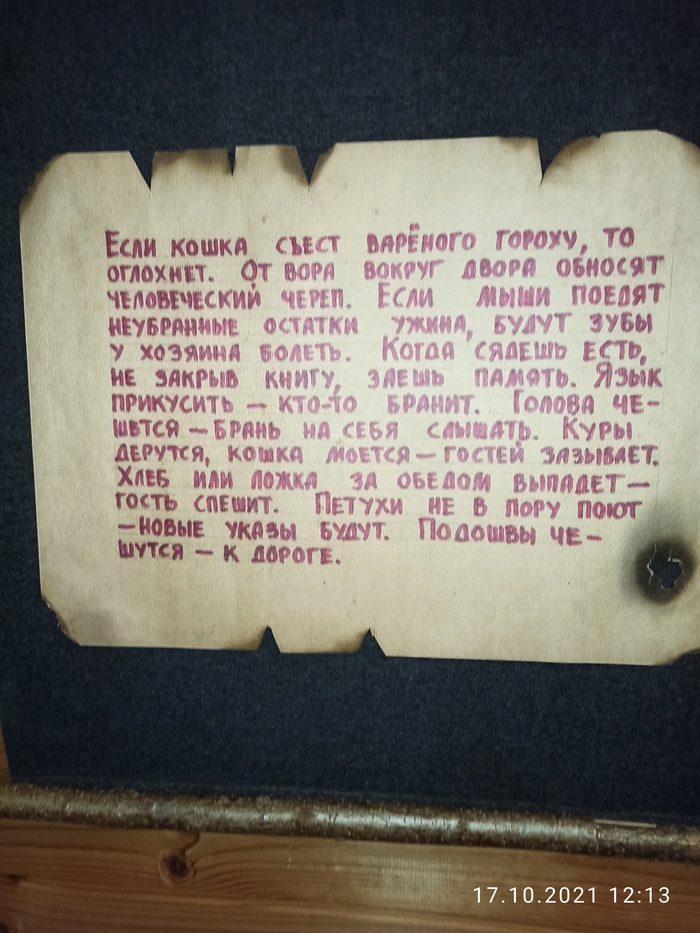 Если кошка съест варёного гороху, то
оглохнет. От вора вокруг двора обносят
человеческий череп. Если мыши поедят
неубранные остатки ужина, будут зубы
у хозяина болеть. Когда сядешь есть,
не закрыв книгу, заешь память. Язык
прикусить — кто-то бранит. Голова че-
шется — брань на себя слышать. Куры
дерутся, кошка моется — гостей зазывает.
Хлеб или ложка за обедом выпадет —
гость спешит. Петухи не в пору поют
— новые указы будут. Подошвы че-
шутся — к дороге.
17.10.2021 12:13